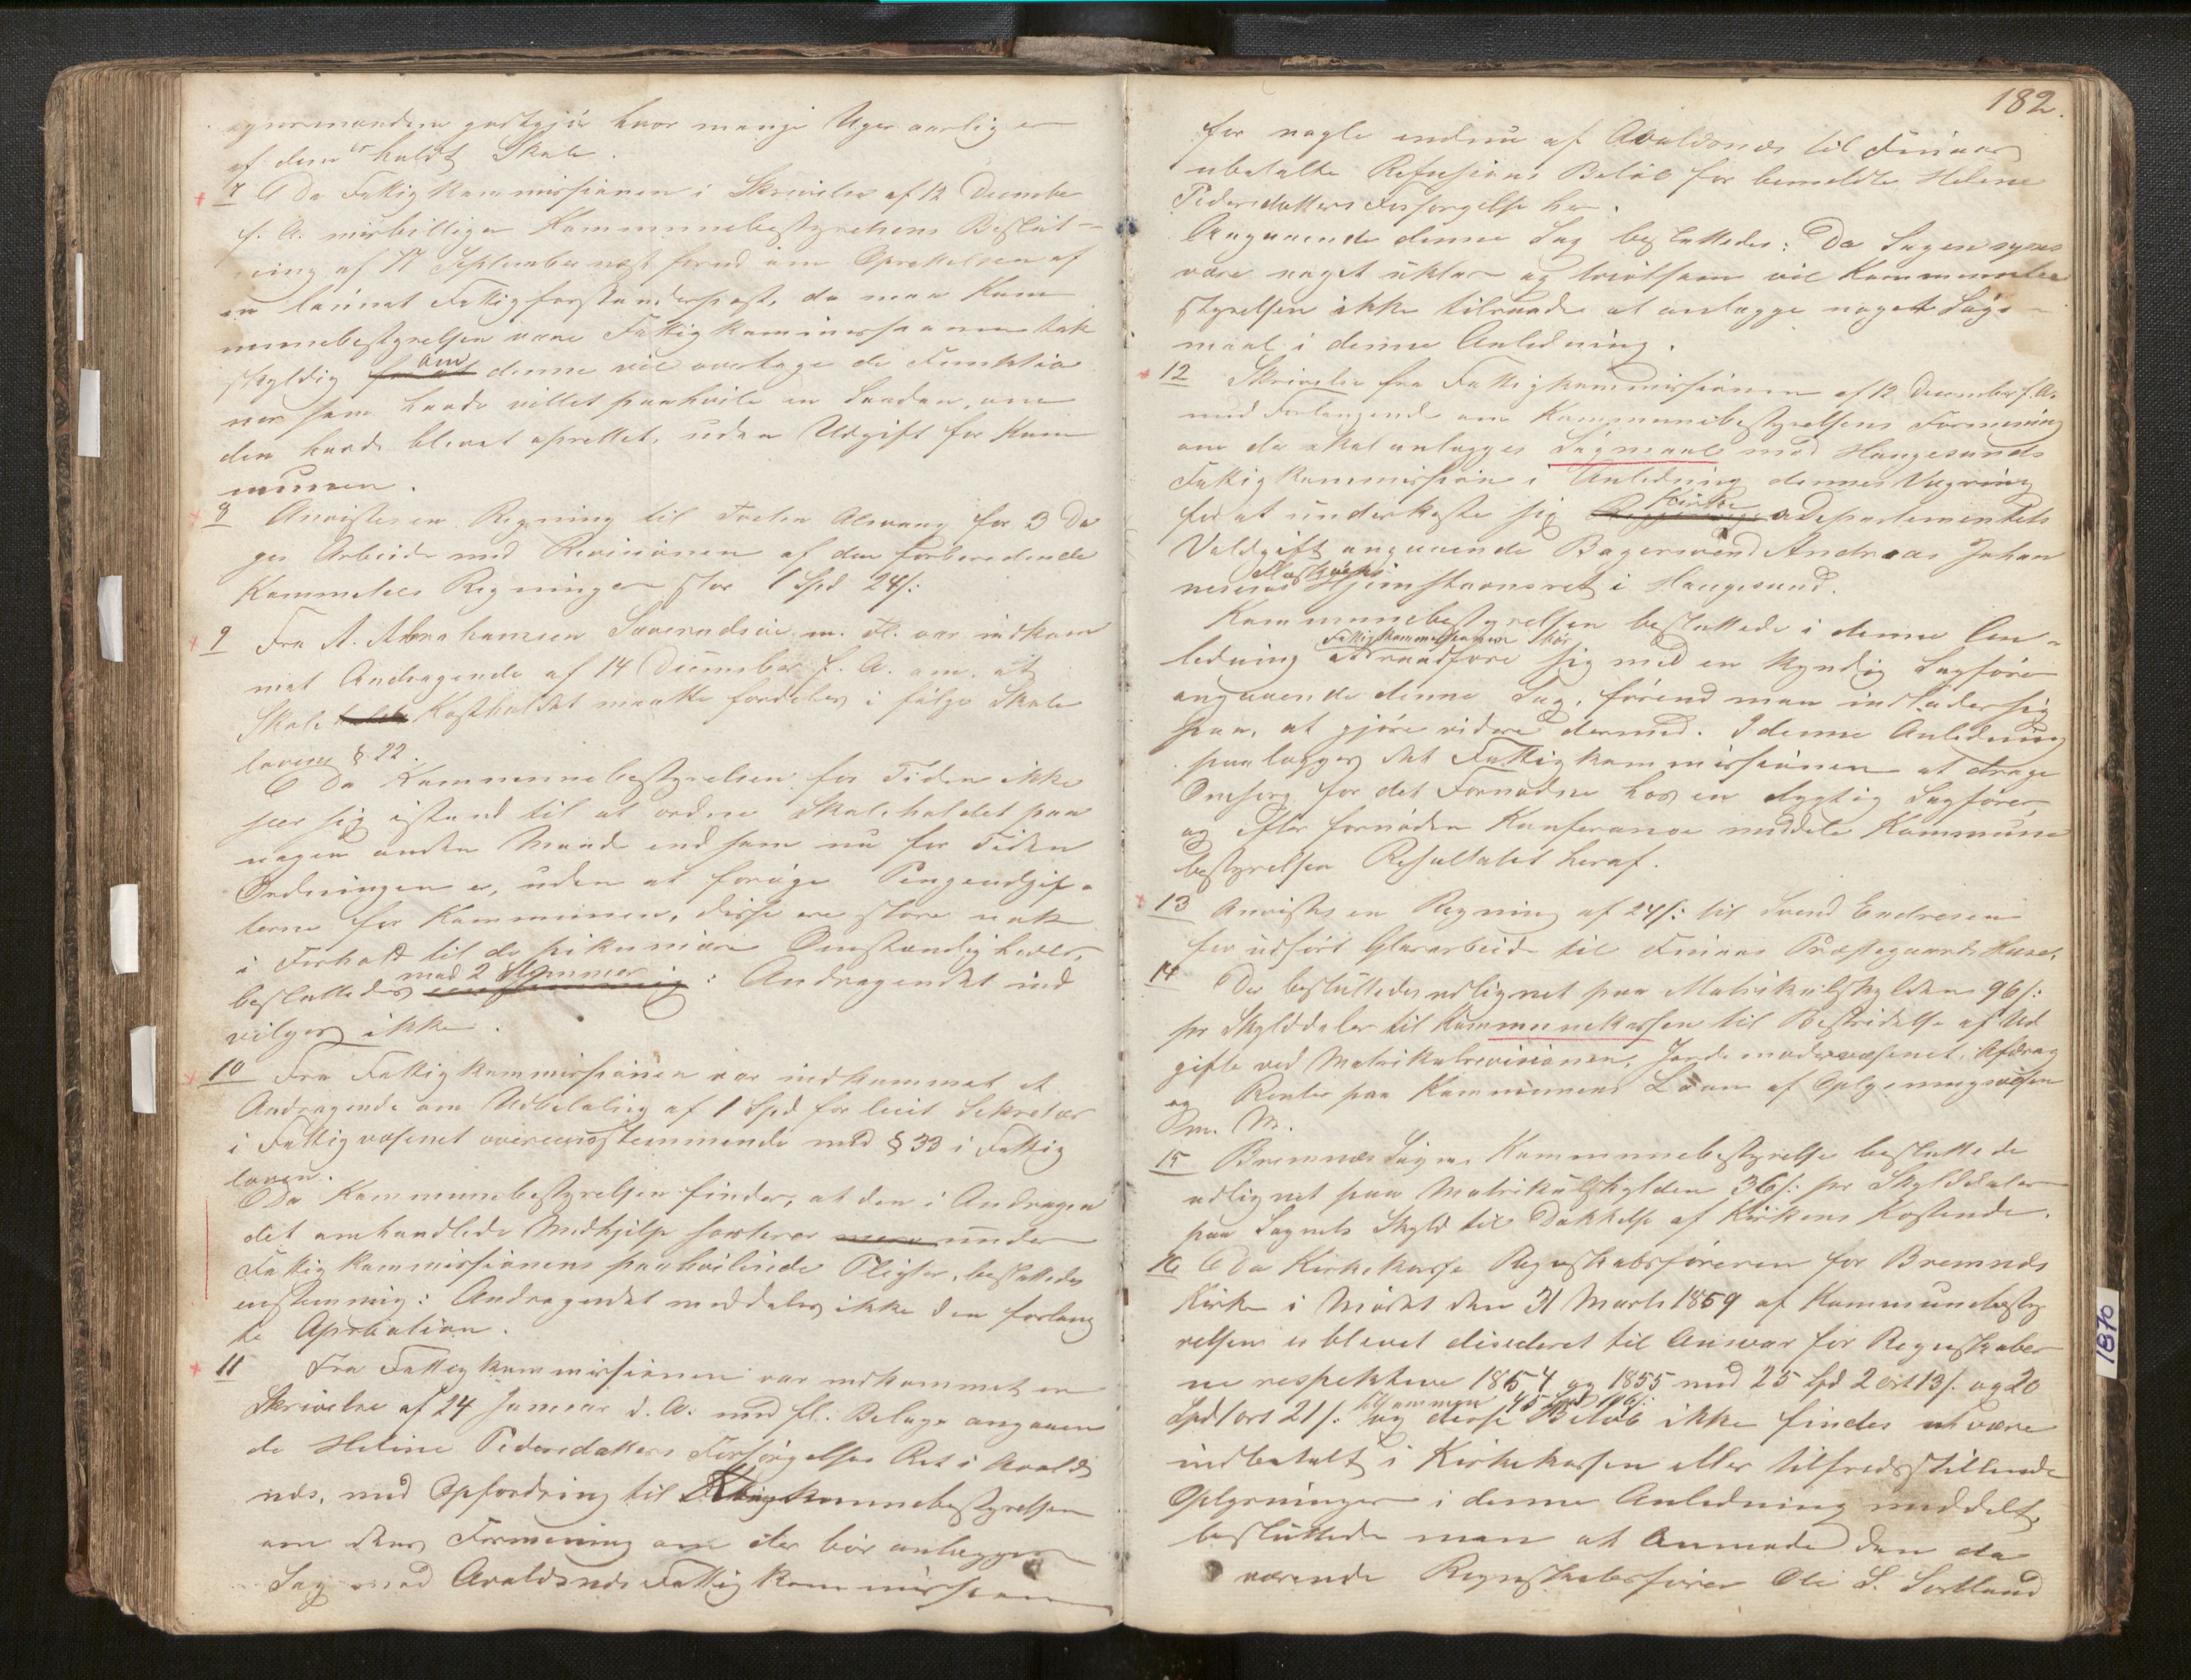 ognemændene godtgjør hvor mange Uger aarlig er
af dem er holdt Skole.
7 Da Fattigkommissionen i Skrivelse af 12 December
f. A. misbilliger Kommunebestyrelsens Beslut-
ning af 17 September næst forud om Oprettelsen af
en lønnet Fattigforstanderpost, da maa Kom
munebestyrelsen være Fattigkommissionen tak
skyldig for at om denne vil overtage de Funktio
ner som havde villet paahvile en Saadan, om
den havde blevet oprettet, uden Udgift for Kom
munen.
8 Anvistes en Regning til Torbn Alsvaag for 3 Da
ges Arbeide med Revisionen af den forberedende
Kommitees Regninger stor 1 Spd 24 s:
9 Fra A. Abrahamsen Sivernsdsøe m. Fl. var indkom
met Andragende af 14 December f. A. om, at
Skole Kostholdet maatte fordeles i følge Skole
lovens § 22.
Da Kommunebestyrelsen for Tiden ikke
ser sig istand til at ordne Skoleholdet paa
nogen anden Maade end som nu for Tiden
Ordningen er, uden at forøge Pengeudgif-
terne for Kommunen, disse ere store nok
i Forhold til de pikuniære Omstændigheder,
besluttedes enstemmig med 2 Stemmer: Andragendet ind
vilges ikke.
10 Fra Fattigkommissionen var indkommet et
Andragende om Udbetaling af 1 Spd for leiet Sekretær
i Fattigvæsenet overensstemmende med § 33 i Fattig
loven.
Da Kommunebestyrelsen finder, at den i Andragen
det omhandlede Medhjelp sorterer under
Fattigkommissionens paahvilende Pligter, besluttedes
enstemmig: Andragendet meddeles ikke den forlang
te Aprobation.
11 Fra Fattigkommissionen var indkommet en
Skrivelse af 24 Januar d. A. med fl. Bilage angaaen
de Heline Pedersdatters Forsørgelses Ret i Avalds
næs, med Opfordring til Kommunebestyrelsen
om dens Formening om der bør anlægges
Sag mod Avaldsnæs Fattigkommission
182.
for nogle endnu af Avaldsnæs til Finaas
ubetalte Refusions Beløb for bemeldte Heline
Pedersdatters Forsørgelse her.
Angaaende denne Sag besluttedes: Da Sagen synes
være noget uklar og tvivlsom vil Kommunebe
styrelsen ikke tilraade at anlægge noget Søgs-
maal i denne Anledning.
12 Skrivelse fra Fattigkommissionen af 12 December f. A.
med Forlangende om Kommunebestyrelsens Formening
om der skal anlægges Søgmaal mod Haugesunds
Fattigkommission i Anledning dennes Vægring
for at underkaste sig Kirke departementets
Voldgift angaaende Bagersvend Andreas Johan
nesens Hjemstavnsret i Haugesund.
Kommunebestyrelsen besluttede i denne An-
ledning at Fattigkommissionen bør raadføre sig med en kyndig Sagfører
angaaende denne Sag, førend man indlader sig
paa, at gjøre videre dermed. I denne Anledning
paalægges det Fattigkommissionen at drage
Omsorg for det Fornødne hos en dygtig Sagfører,
og efter fornøden Konferance meddele Kommune
bestyrelsen Resultatet heraf.
13 Anvistes en Regning af 24 s: til Svend Endresen
for udført Glasarbeide til Finaas Præstegaards Huse.
14 Der besluttedes udlignet paa Matrikulskylden 96 s:
pr Skylddaler til Kommunekassen til Bestridelse af Ud
gifte ved Matrikulrevisionen, Jordemodervæsenet, Afdrag
og Renter paa Kommunens Laan af Oplysningsvæsen
m. M.
15 Bremnæs Sogns Kommunebestyrelse besluttede
udlignet paa Matrikulskylden 36 s: pr Skylddaler
paa Sognets Skyld til Dækkelse af Kirkens Kostende.
16 Da Kirkekasse Regnskabsføreren for Bremnæs
Kirke i Mødet den 31 Marts 1859 af Kommunebesty
relsen er blevet desideret til Ansvar for Regnskaber
ne respektive 1854 og 1855 med 25 Spd 2 ort 13 s. og 20
Spd 1 ort 21 s: tilsammen 45 Spd og disse Beløb ikke findes at være
indbetalt i Kirkekassen eller tilfredsstillende
Oplysninger i denne Anledning meddelt,
besluttede man at Anmode den da
værende Regnskabsfører Ole S. Sortland
1870